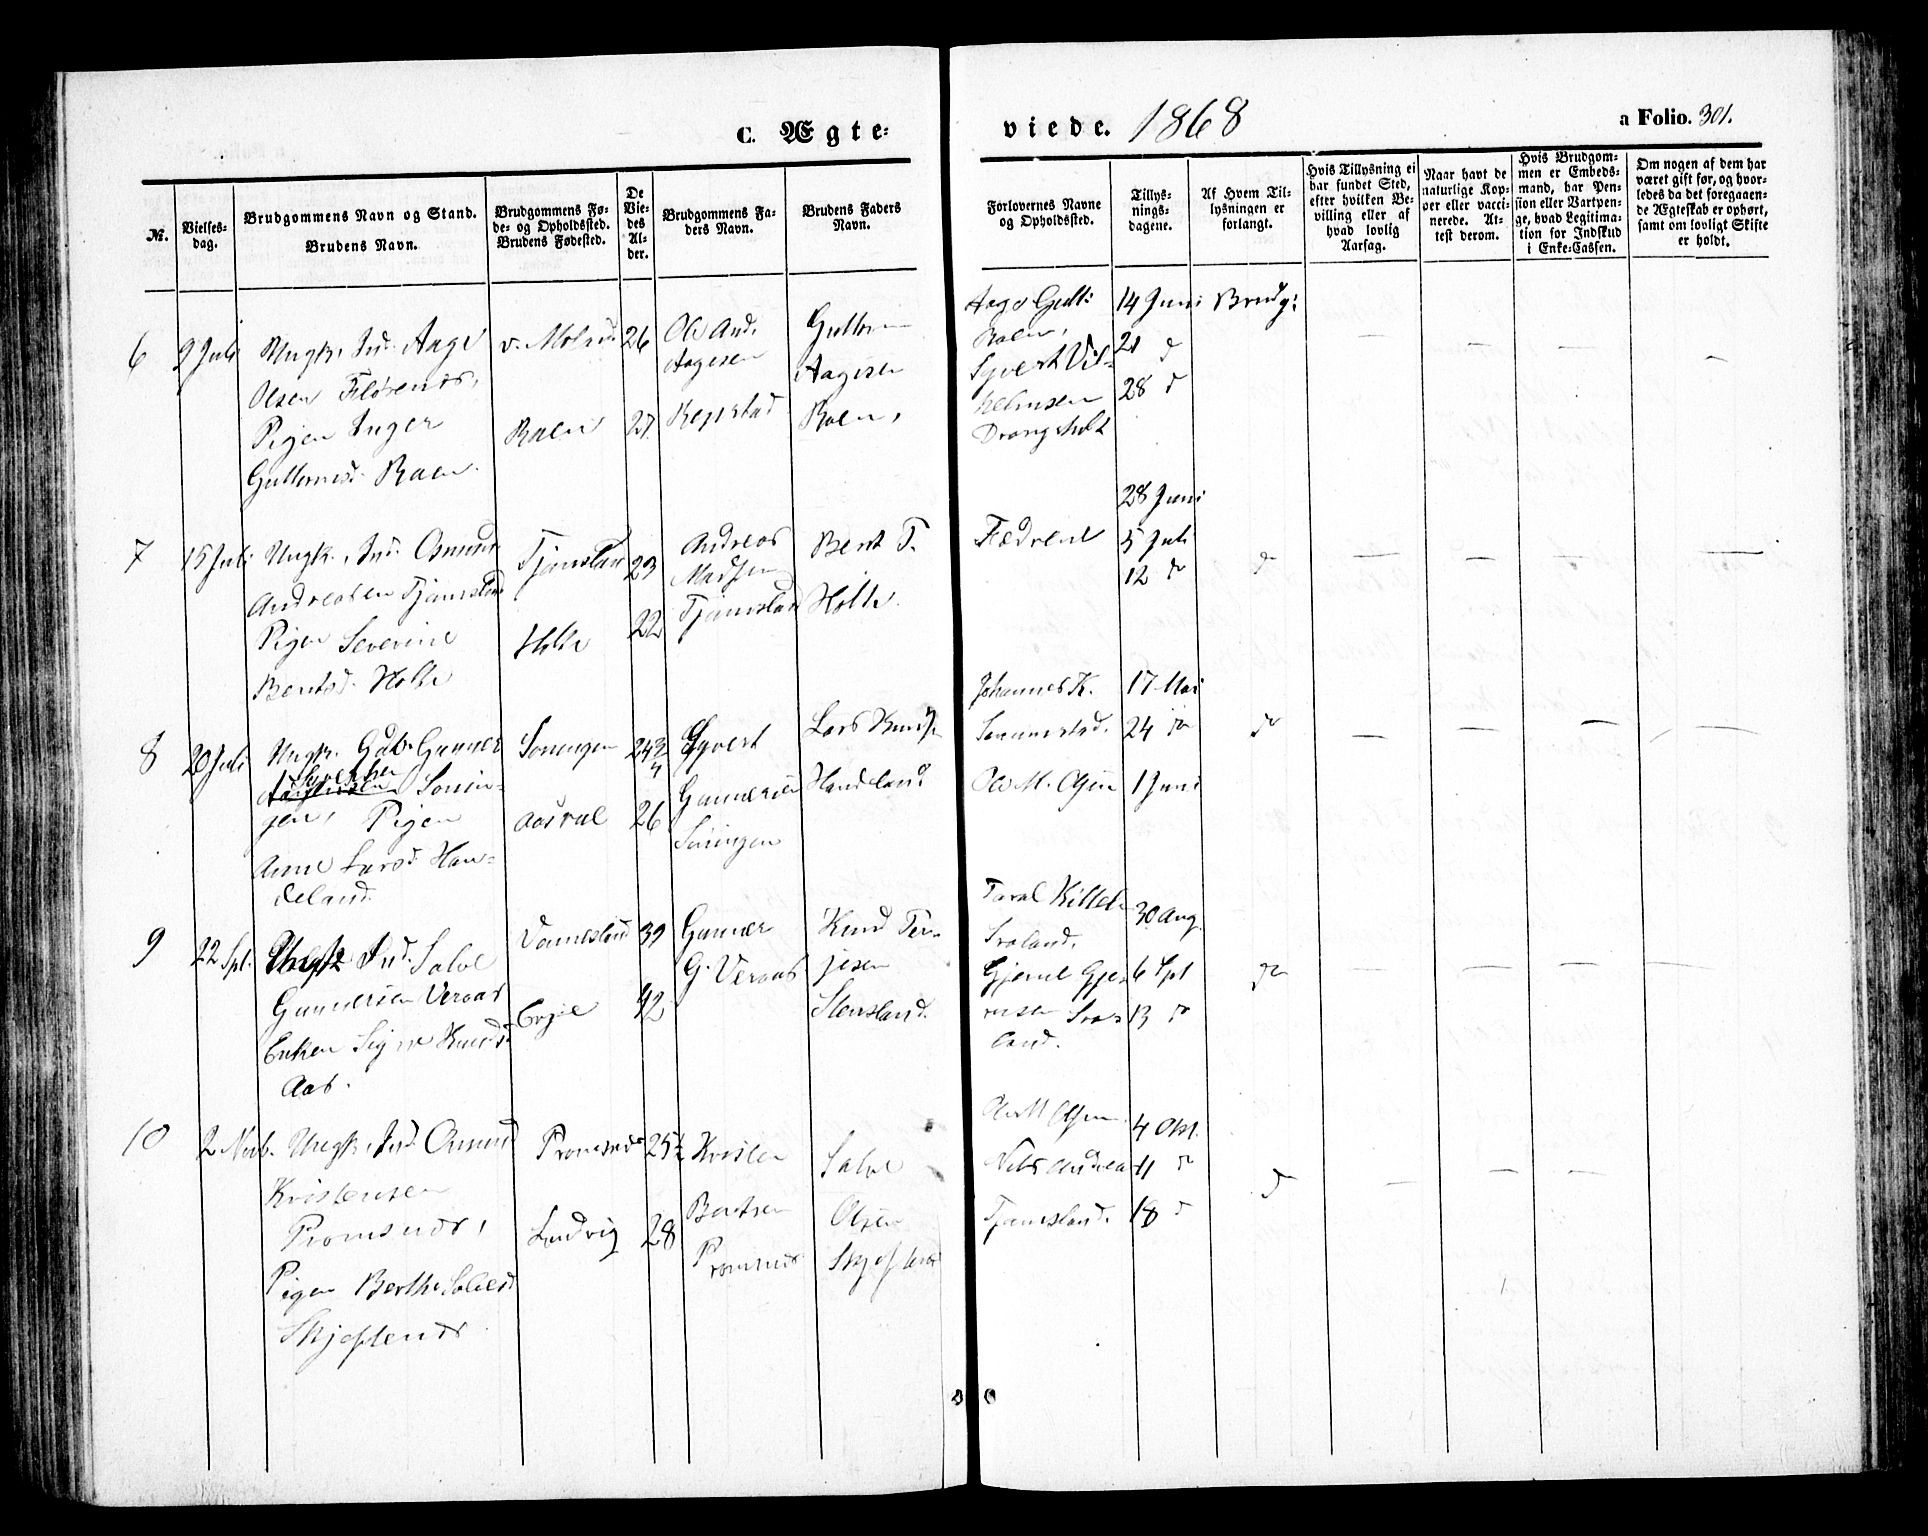 C. Ægte-
viede. 1868
a Folio. 301.
№.
Vielses-
dag.
Brudgommens Navn og Stand.
Brudens Navn.
Brudgommens Fø-
de- og Opholdssted.
Brudens Fødested.
De
Vie-
des
Al-
der.
Brudgommens Fa-
ders Navn.
Brudens Faders
Navn.
Forlovernes Navne
og Opholdssted.
Tillys-
nings-
dagene.
Af Hvem Til-
lysningen er
forlangt.
Hvis Tillysning ei
har fundet Sted,
efter hvilken Be-
villing eller af
hvad lovlig
Aarsag.
Naar havt de
naturlige Kop-
per eller vacci-
nerede. At-
test derom.
Hvis Brudgom-
men er Embeds-
mand, har Pen-
sion eller Vartpen-
ge, hvad Legitima-
tion for Indskud
i Enke-Cassen.
Om nogen af dem har
været gift før, og hvor-
ledes da det foregaaen-
de Ægteskab er ophørt,
samt om lovligt Skifte
er holdt.
6
9 Juli
Ungk. Ind. Aage
Olsen Flørenes,
Pigen Inger
Guttormsd. Raen.
Raen
26
27
Ole And.
Aagesen
Repstad
Guttorm
Aagesen
Raen,
Aage Gutt:
Raen,
Syvert Vil-
helmsen
Drangsholt
14 Juni
21 d
28 d
Brudg:
7
15 Juli
Ungk. Ind. Osmund
Andreasen Tjomsland
Pigen Severine
Bentsd. Holte
Tjomsland
Holte
23
22
Andreas
Madsen
Tjomsland
Bent T.
Holte.
Fædrene
28 Juni
5 Juli
12 do
do
8
20 Juli
Ungk. Gab. Gunner
Syvertsen
Soningen, Pigen
Anne Larsd. Han-
deland
Soningen
Aaseral
24 3/4
26
Syvert
Gunnersen
Soningen
Lars Knuds.
Handeland
Johannes K.
Ole M. Olsen
17 Mai
24 do
1 Juni
do
9
22 Spt.
Ungk. Ind. Salve
Gunnersen Veraas
Enken Signe Knudsd.
Aas.
Evje
39
42
Gunner
G. Veraas
Knud Ter-
jesen
Stensland.
Taral Kittels.
Gjerul Gje-
rulsen
land.
30 Aug.
6 Spt
13 do
do
10
2 Novb.
Ungk. Ind. Osmund
Kristensen
Promsnes,
Pigen Berthe Salvesd.
Skjeftenes
Promsnes
Ludvig
25 1/2
28
Kristen
Bentsen
Promsnes
Salve
Olsen
Skjeftenes
Ole M Olsen
Nils Andrea
Tjomsland.
4 Okt.
11 do
18 d
do